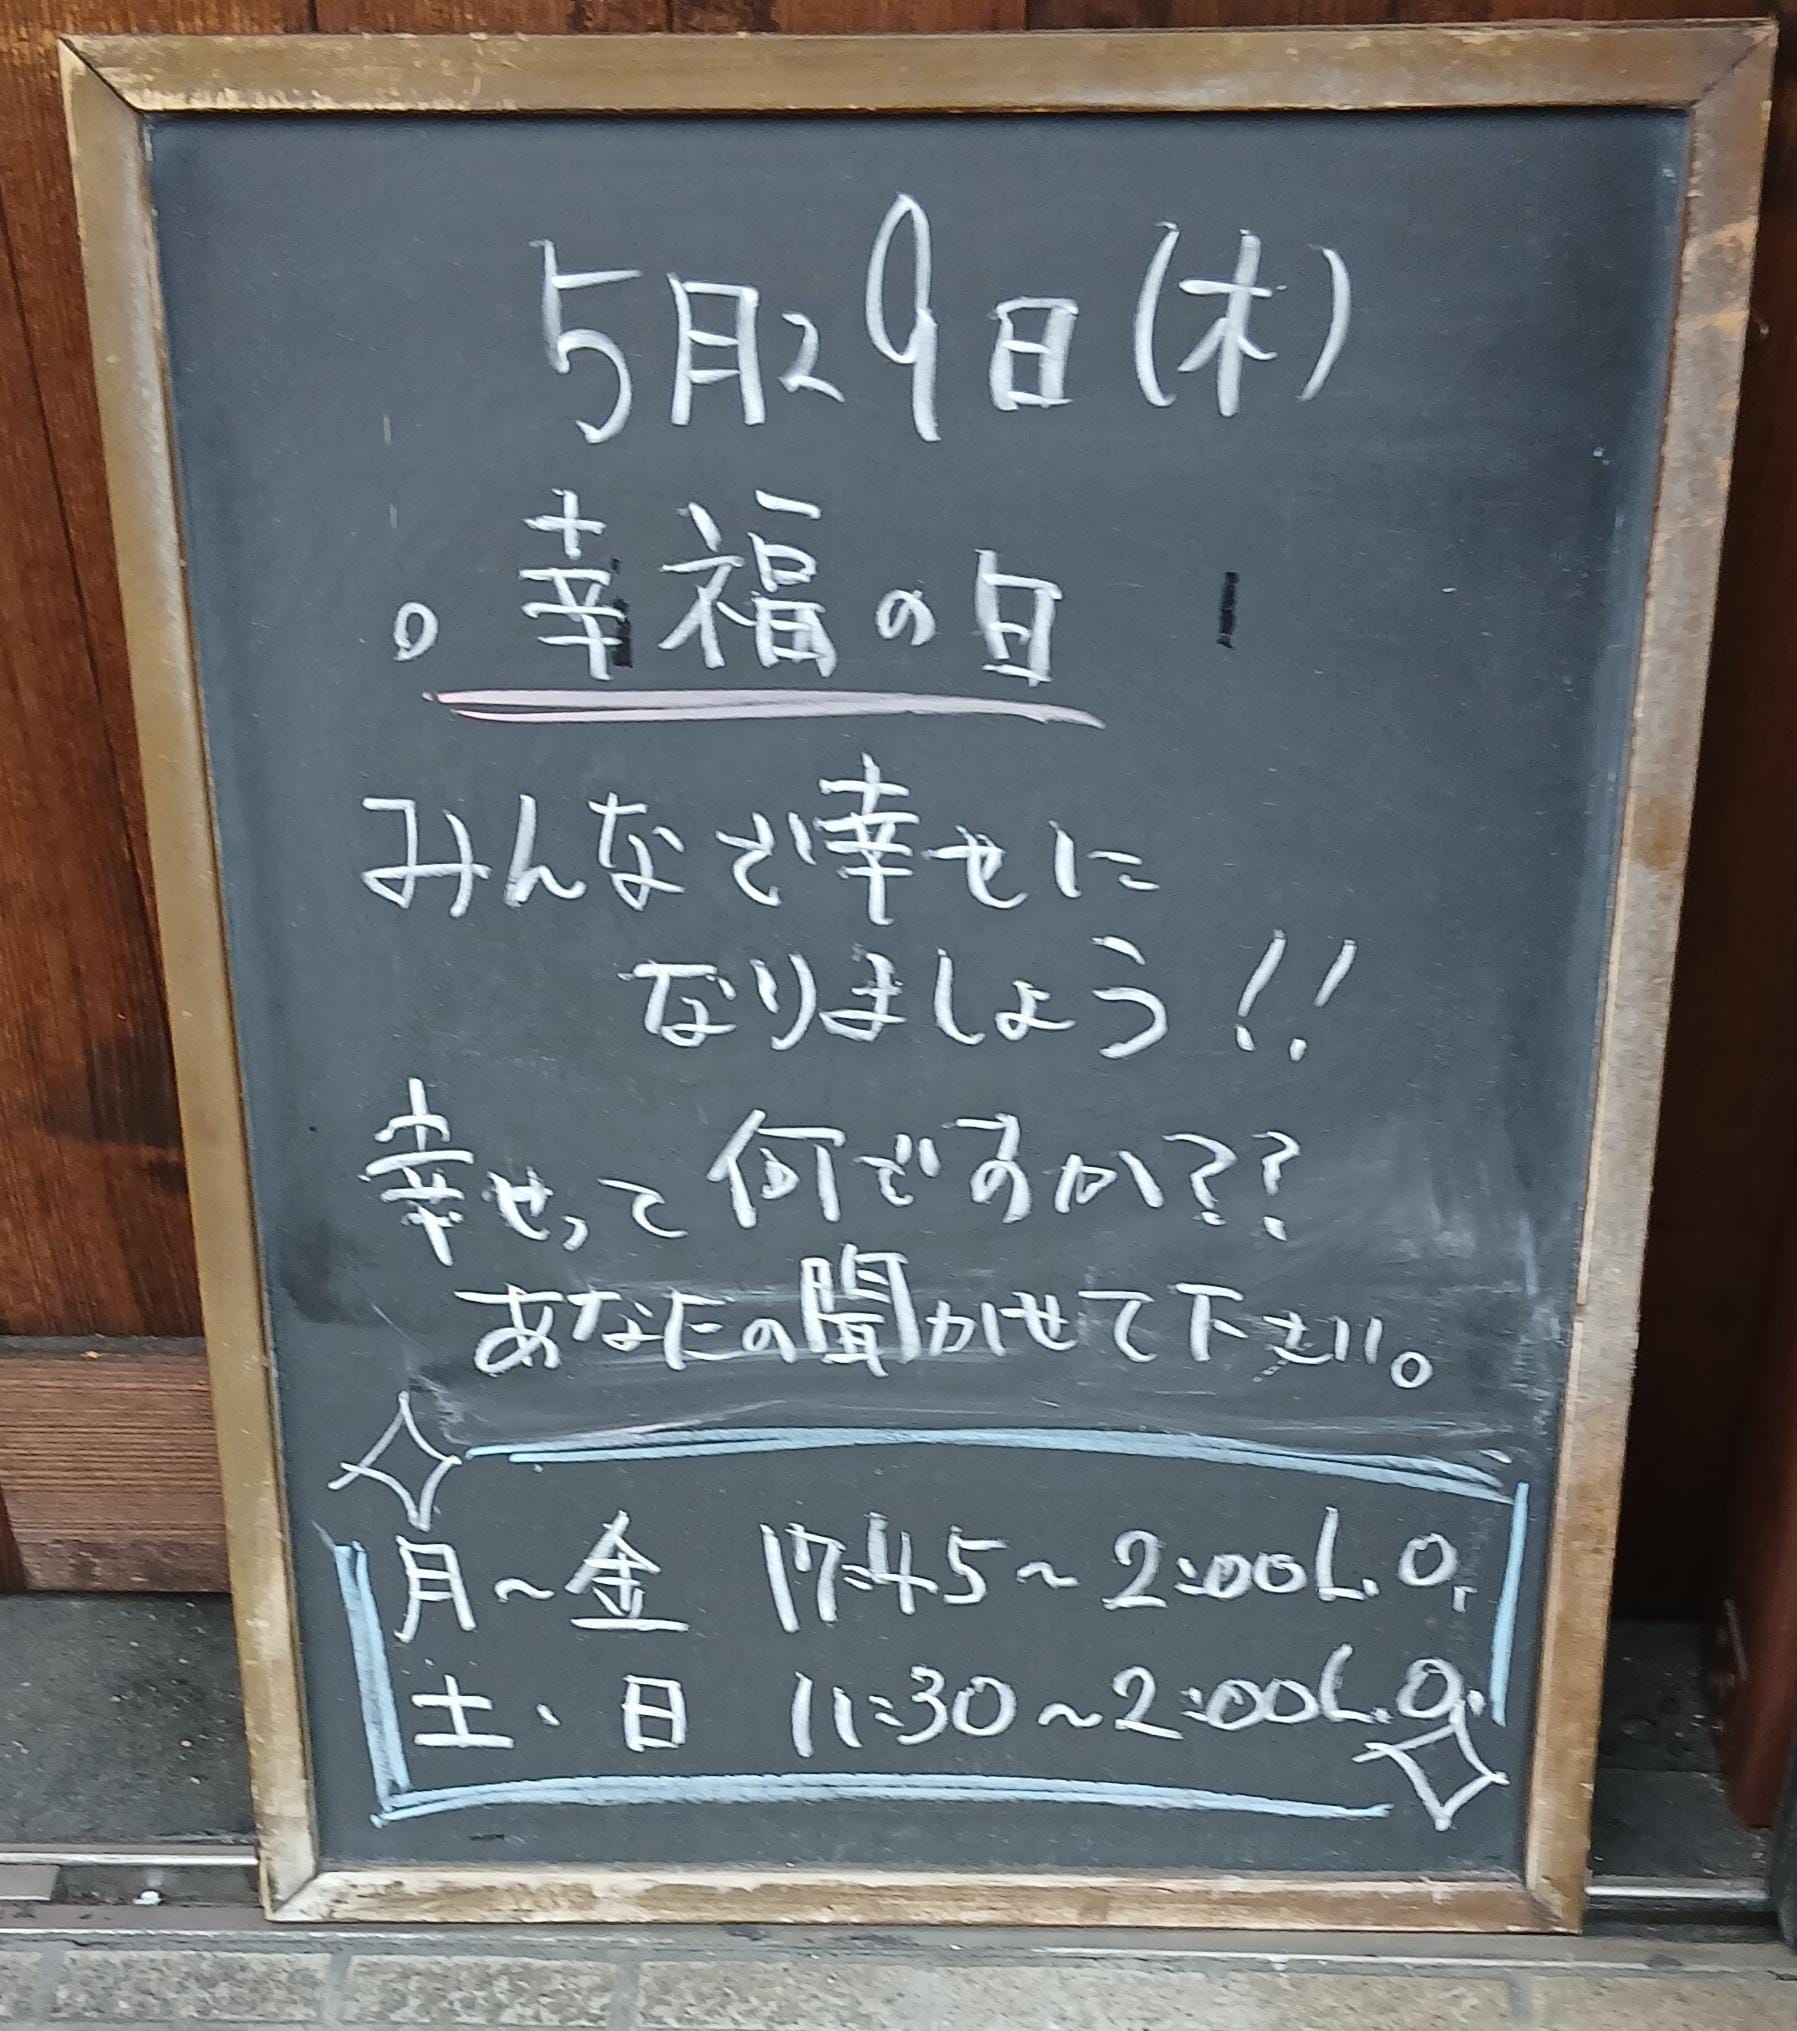 5月29日(木)
。幸福の日
みんなで幸せに
なりましょう!!
幸せって何ですか??
あなたの聞かせて下さい。
月~金 17:45~2:00L.O.
土、日 11:30~2:00L.O.